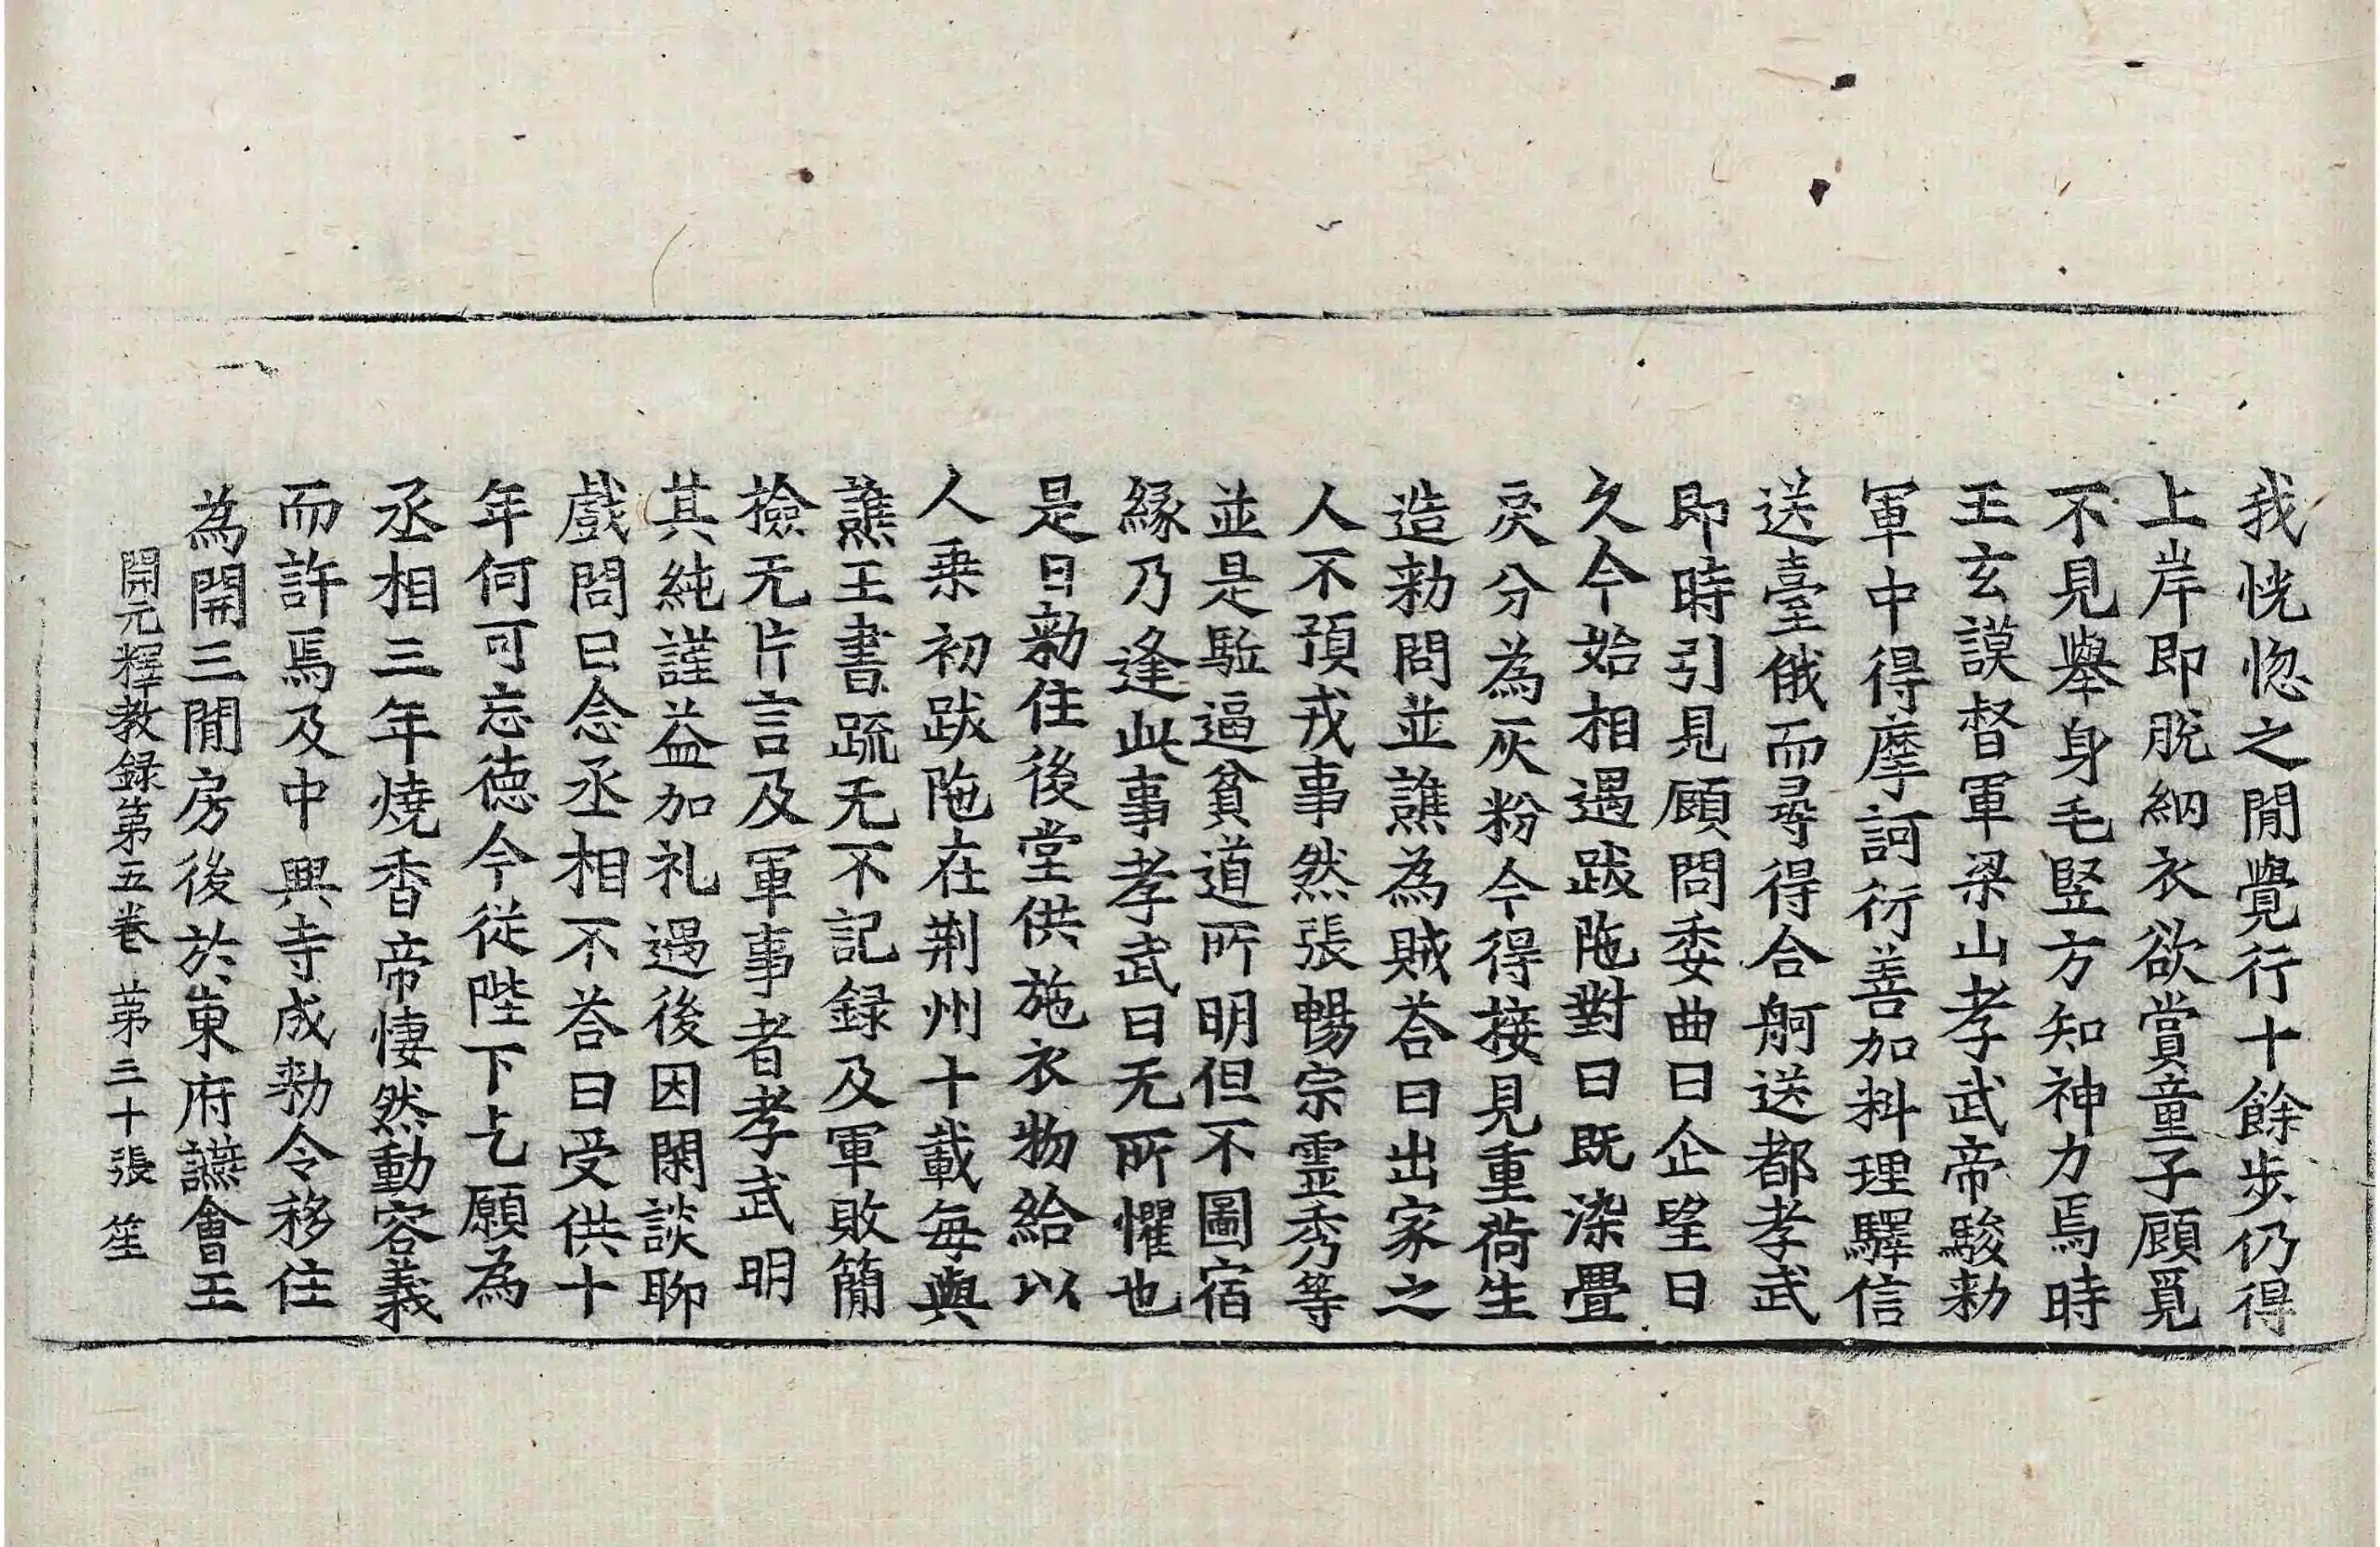 我恍惚之間覺行十餘步仍得
上岸即脫納衣欲賞童子顧覓
不見舉身毛竪方知神力焉時
王玄謨督軍梁山孝武帝駿勑
軍中得摩訶衍善加料理驛信
送臺俄而尋得合舸送都孝武
即時引見顧問委曲曰企望日
久今始相遇跋陁對曰既染疊
戾分為灰粉今得接見重荷生
造勑問並譙為賊荅曰出家之
人不預戎事然張暢宗霊秀等
並是駈逼貧道所明但不圖宿
緣乃逢此事孝武曰无所懼也
是日勑住後堂供施衣物給以
人乗初跋陁在荆州十載每與
譙王書䟽无不記録及軍敗簡
撿无片言及軍事者孝武明
其純謹益加礼遇後因閑談聊
戲問曰念丞相不荅曰受供十
年何可忘德今從陛下乞願為
丞相三年燒香帝悽然動容義
而許焉及中興寺成勑令移住
為開三間房後於東府讌會王
開元釋教録第五卷 苐三十張 笙